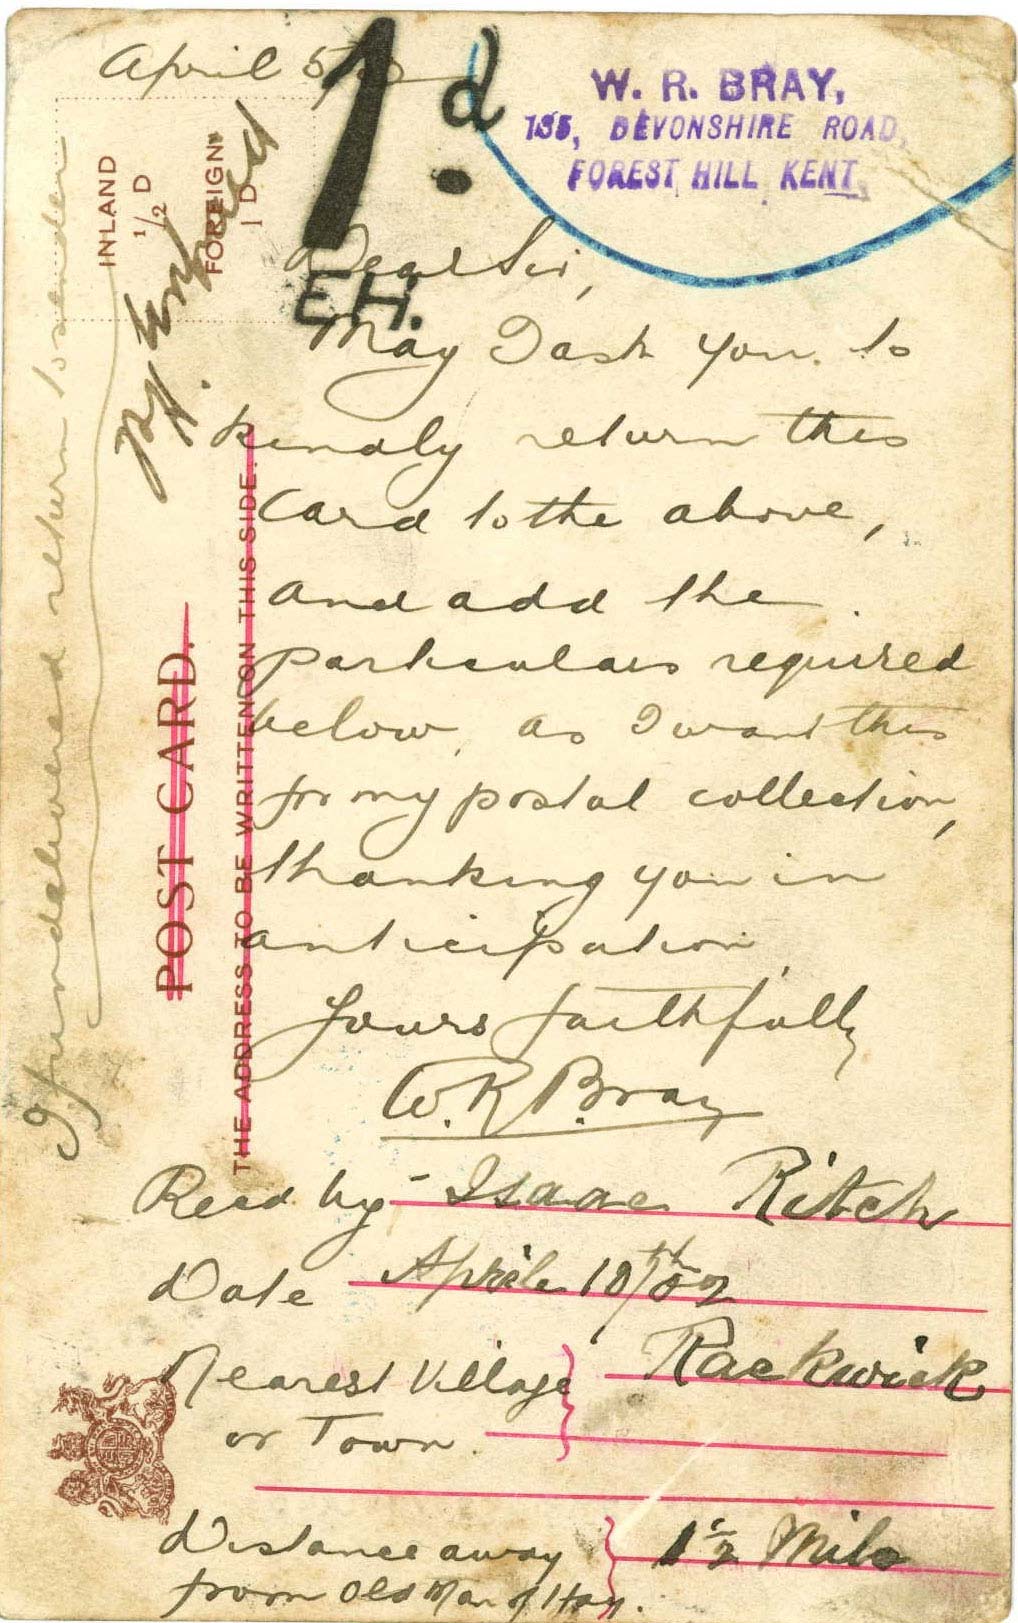 April 5/02
1d.
E.H.
W. R. BRAY,
135, DEVONSHIRE ROAD,
FOREST HILL KENT.
INLAND
½ D
FOREIGN
1 D
If undelivered return to sender
POST CARD.
THE ADDRESS TO BE WRITTEN ON THIS SIDE.
Dear Sir,
May I ask you. to
kindly return this
Card to the above,
and add the
particulars required
below, as I want this
for my postal collection,
thanking you in
anticipation,
Yours faithfully
W. R. Bray
Recd by - Isaac Ritch
Date April 10th/02
Nearest Village Rackwick
or Town.
Distance away 1½ Mile
from Old Man of Hoy.